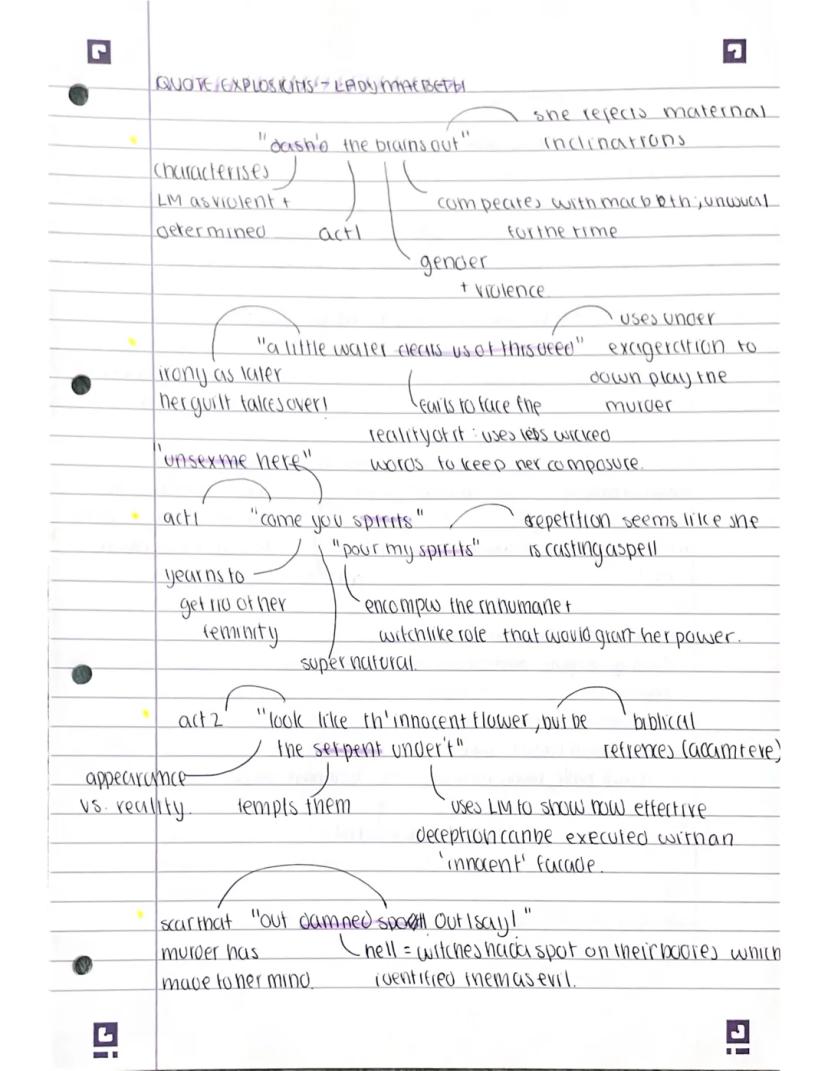 QUOTE EXPLOSIONS - LADY MACBETH
she rejects maternal
"dash'd the brains out" inclinations
characterises
LM as violent + competes with macbeth; unusual
determined act1 for the time
gender
+ violence
uses under
"a little water clears us of this deed" exageration to
irony as later down play the
her guilt takes over! fails to face the murder
reality of it : uses less wicked
"unsex me here" words to keep her composure.
act1 "come you spirits" repetition seems like she
"pour my spirits" is casting a spell
yearns to
get rid of her the inhumane +
feminity witchlike role that would grant her power.
super natural.
act 2 "look like th'innocent flower, but be biblical
the serpent under't" refrences (adam + eve)
appearance
vs. reality. tempts them uses LM to show how effective
deception can be executed with an
'innocent' facade.
scar that "out damned spot Out I say!"
murder has hell = witches had a spot on their bodies which
made to her mind. identified them as evil.